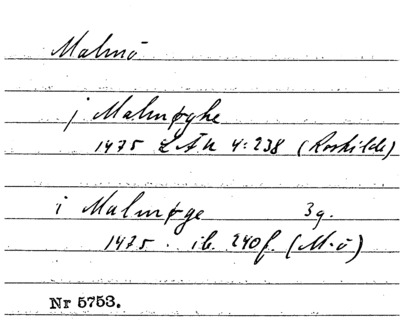 Malmö
j Malmøghe
1475 LÄU 4:238 (Roskilde)
i Malmøge 3g.
1475. ib. 240f. (M-ö)
Nr 5753.